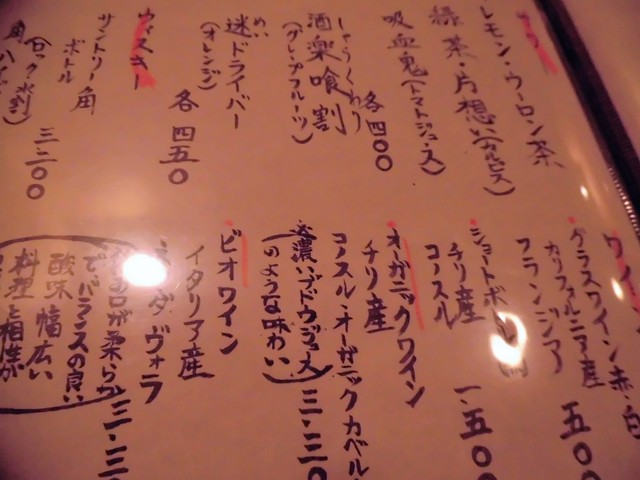 レモン・ウーロン茶
緑茶・片想い(カルピス)
吸血鬼(トマトジュース)
各四〇〇
しゃらくわり
酒楽喰割
(グレープフルーツ)
めい
迷ドライバー
(オレンジ)
各四五〇
ウィスキー
サントリー角
ボトル
(ロック・水割)
三.二〇〇
ワイン
グラスワイン赤・白
カリフォルニア産
フランジア
五〇
チリ産
コノスル
一.五〇
オーガニックワイン
チリ産
コノスル・オーガニックカベル
濃いブドウジュース
のような味わい
三.三〇
ビオワイン
イタリア産
ダ ヴォラ
三.三
口が柔らか
で、バランスの良い
酸味幅広い
料理と相性が